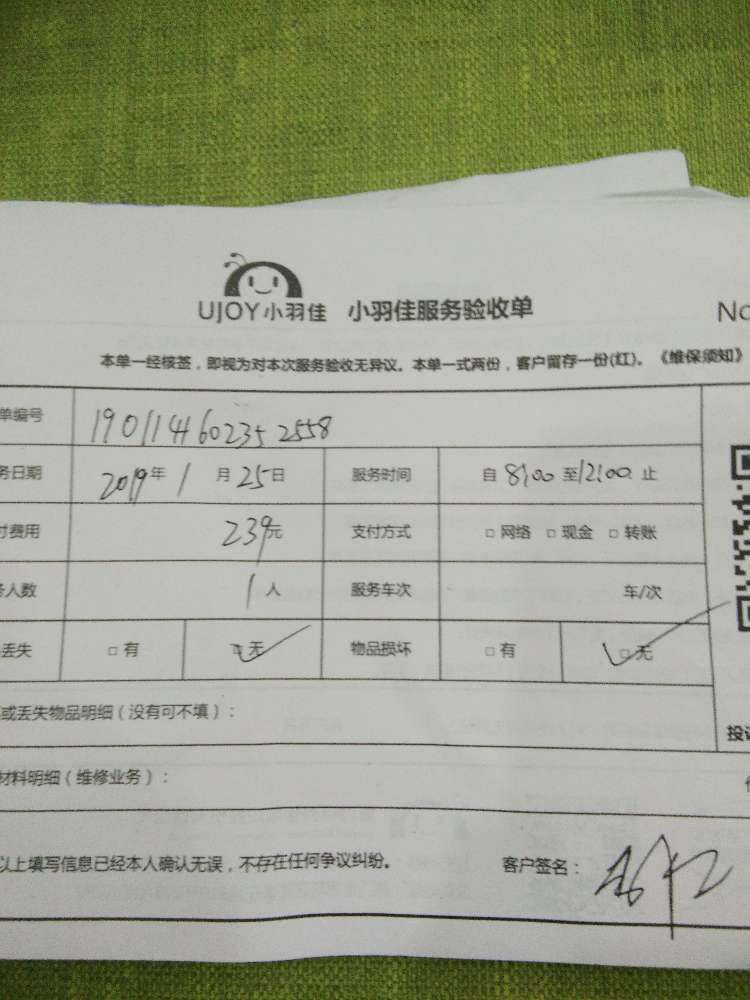 UJOY小羽佳 小羽佳服务验收单 No
本单一经核签，即视为对本次服务验收无异议。本单一式两份，客户留存一份(红)。《维保须知》
单编号 1901141602352558
务日期 2019年1月25日 服务时间 自8:00至12:00止
付费用 239元 支付方式 □网络 □现金 □转账
务人数 1人 服务车次 车/次
丢失 □有 □无 物品损坏 □有 □无
或丢失物品明细（没有可不填）：
投诉
材料明细（维修业务）：
以上填写信息已经本人确认无误，不存在任何争议纠纷。 客户签名：